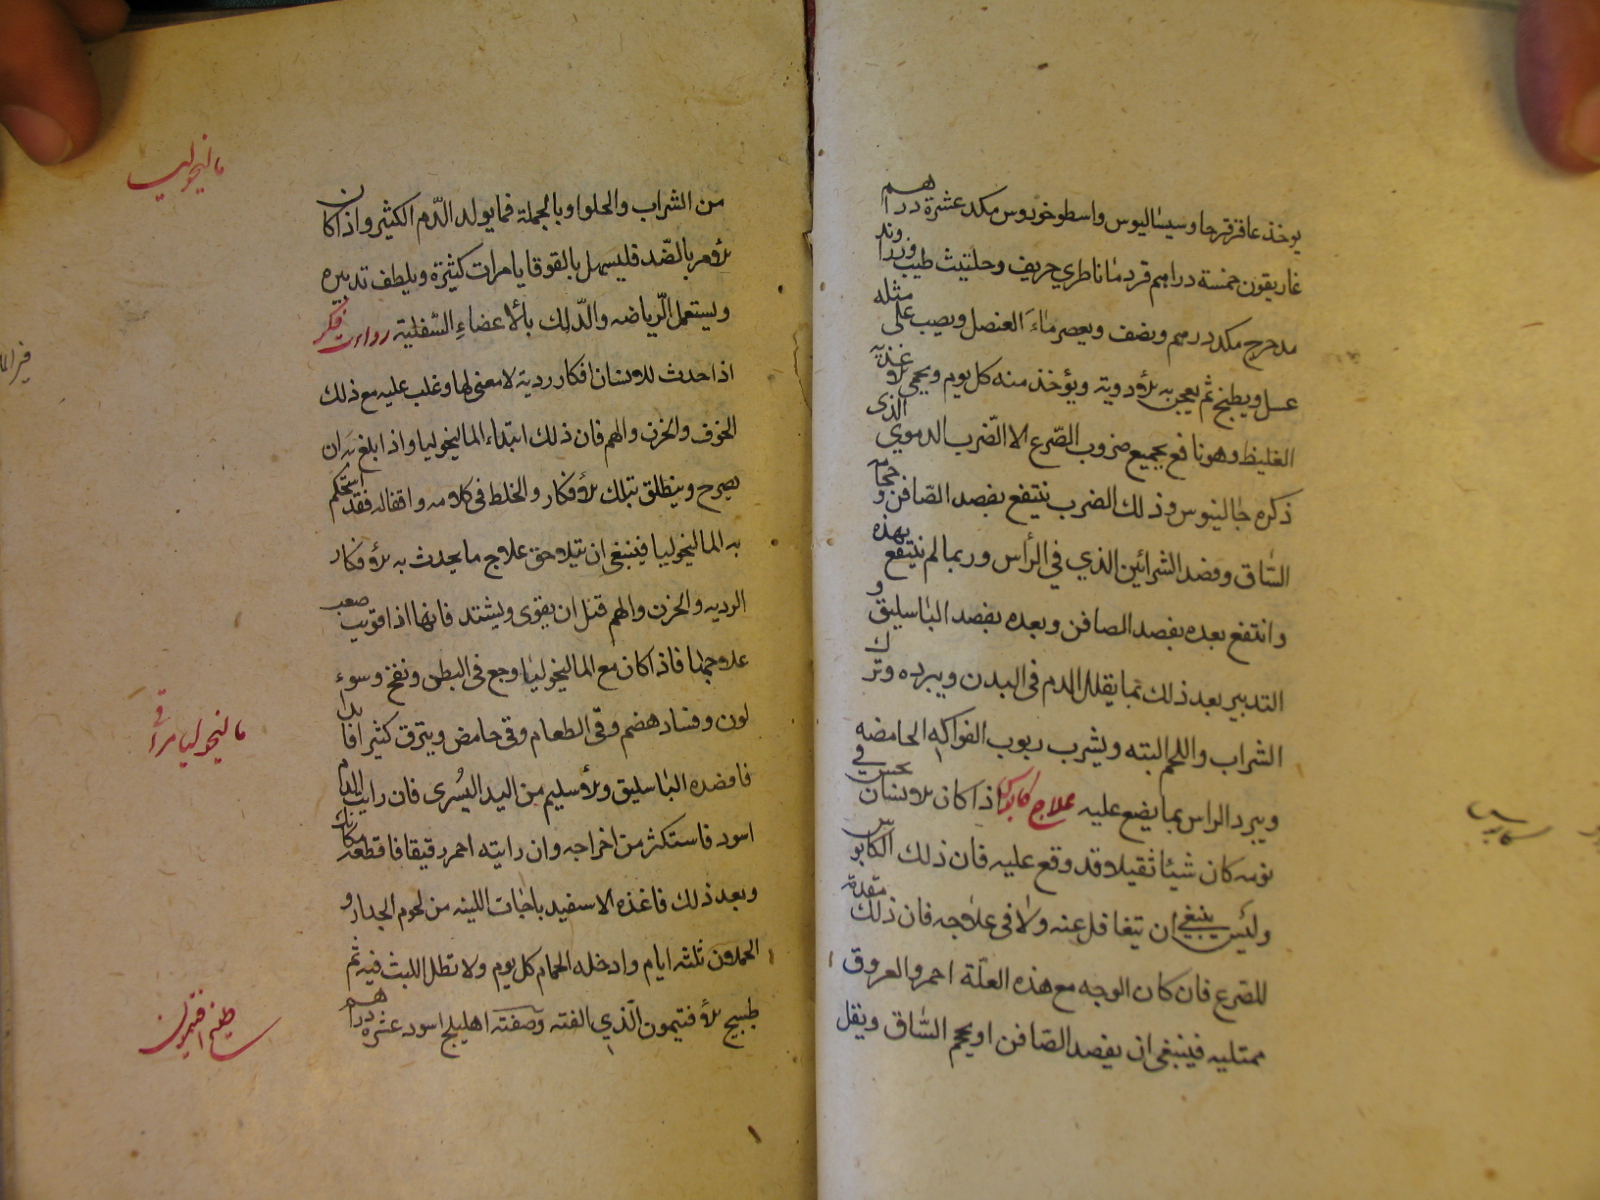 يوخذ عاقرقرحا وسيساليوس واسطوخودوس مكد عشرة دراهم
غاريقون خمسة دراهم قردمانا طري حريف وحلتيث طيب وزراوند
مدحرج مكد درهم ونصف ويعصر ماء العنصل ويصب على مثله
عسل ويطبخ ثم يعجن به الأدوية ويؤخذ منه كل يوم ويحمي الأغذية
الغليظ وهو نافع بجميع ضروب الصّرع الا الضّرب الدموي الذى
ذكره جالينوس وذلك الضرب ينتفع بفصد الصّافن و حجامة
السّاق وفصد الشرائين الذي في الرأس وربما لم ينتفع بهذه
وانتفع بعده بفصد الصافن وبعده بفصد الباسليق و
التدبير بعد ذلك بما يقلل الدم فى البدن ويبرده وترك
الشراب واللحم البته ويشرب ربوب الفواكه الحامضه
ويبرد الراس بما يضع عليه علاج كابوس اذا كان الانسان يحس في
نومه كان شيئا ثقيلا قد وقع عليه فان ذلك الكابوس
وليس ينبغي ان يتغافل عنه ولا فى علاجه فان ذلك مقدمة
للصرع فان كان الوجه مع هذه العلّة احمر والعروق
ممتليه فينبغى ان يفصد الصّافن او يحجم السّاق ويقل
كابوس
من الشراب والحلوا وبالجملة فما يولد الدّم الكثير واذا كان
الأمر بالضّد فليسهل بالقوقايا مرات كثيرة ويلطف تدبيره
ويستعمل الرّياضه والدّلك بالأعضاءِ السّفلية رداءت فكر
اذا حدث للانسان افكار ردية لا معنى لها وغلب عليه مع ذلك
الخوف والحزن والهم فان ذلك ابتداء الماليخوليا واذا بلغ به ان
يصرح وينطلق بتلك الأفكار والخلط فى كلامه وافعاله فقد استحكم
به الماليخوليا فينبغى ان يتلاحق علاج ما يحدث به الأفكار
الرديه والحزن والهم قبل ان يقوى ويشتد فانها اذا قويت صعب
علاجها فاذا كان مع الماليخوليا وجع فى البطن ونفخ وسوء
لون وفساد هضم وقى الطعام وقى حامض ويبزق كثيرا فابدا
فافصده الباسليق والأسليم من اليد اليُسرى فان رايت الدم
اسود فاستكثر من اخراجه وان رايته احمر رقيقا فاقطعه مكانك
وبعد ذلك فاغذه الاسفيدباجات اللينه من لحوم الجدا و
الحملان ثلثه ايام وادخله الحمام كل يوم ولا تطل اللبث فيه ثم
طبيخ الأفتيمون الّذي الفته وصفته اهليلج اسود عشرة دراهم
مالنيخوليا
مالنيخوليا مراقى
طبيخ افتيمون